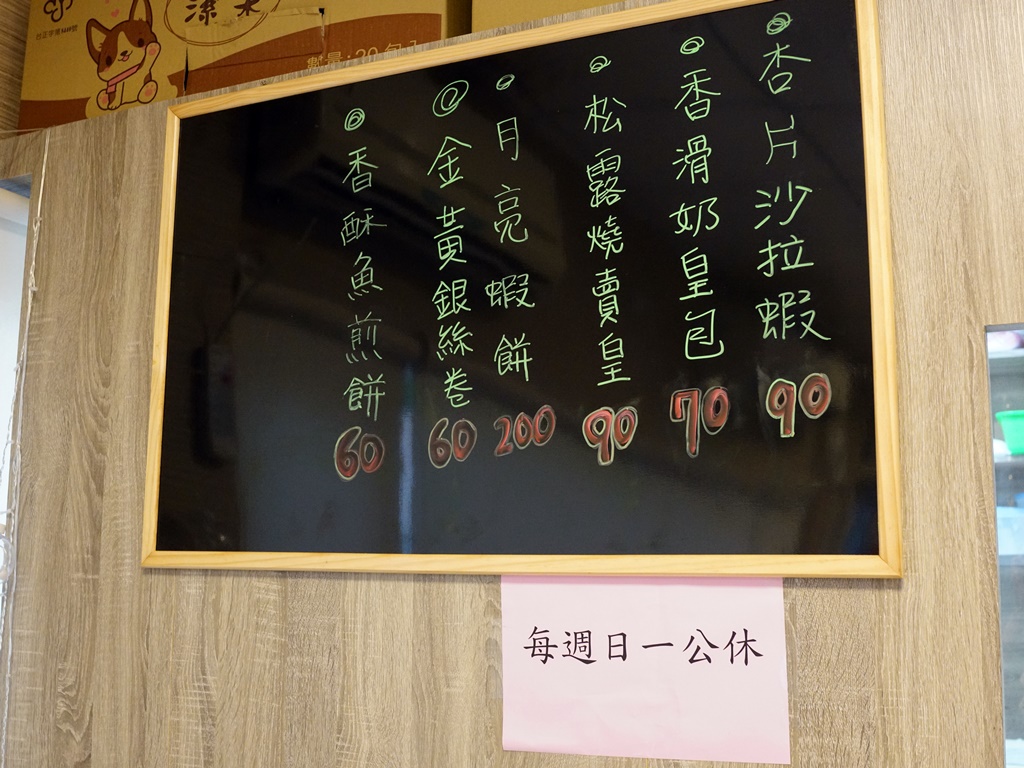 潔來
數量:20包入
◎杏片沙拉蝦90
◎香滑奶皇包70
◎松露燒賣皇90
◎月亮蝦餅200
◎金黃銀絲卷60
◎香酥魚煎餅60
每週日一公休